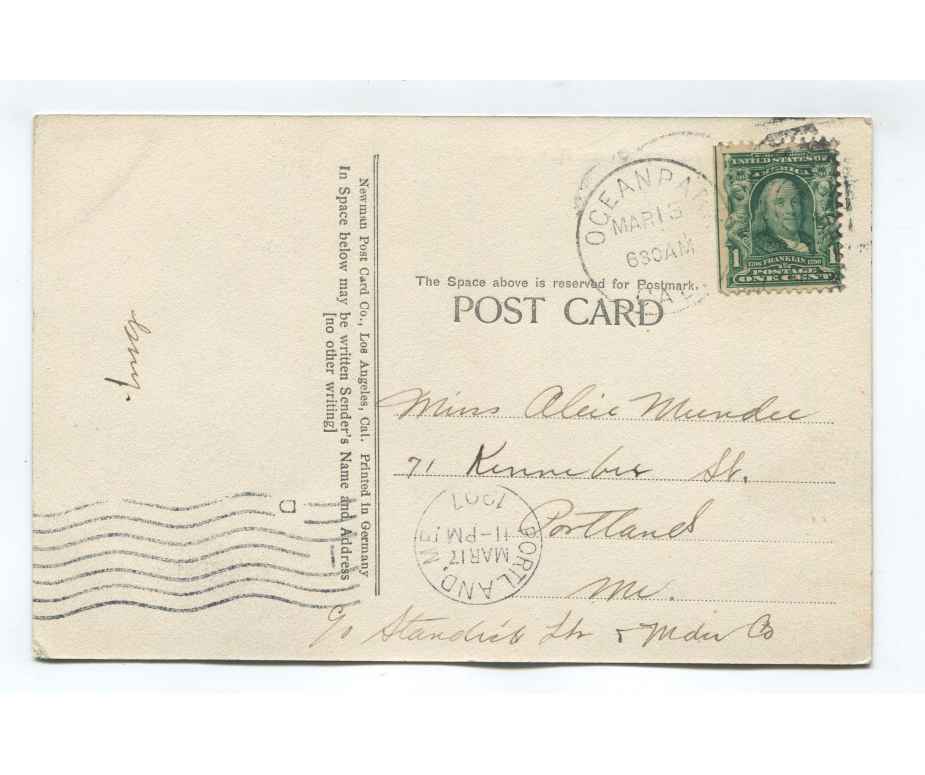 OCEAN PARK
MAR 13
630AM
CAL
UNITED STATES OF
AMERICA
1 1706 FRANKLIN 1790 1
POSTAGE
ONE CENT
The Space above is reserved for Postmark.
POST CARD
Newman Post Card Co., Los Angeles, Cal. Printed in Germany
In Space below may be written Sender's Name and Address
[no other writing]
Miss Alcie Mundee
71 Kennebec St.
Portland
Me.
c/o Standish
Co
PORTLAND, ME
MAR17
11-PM
1907
D